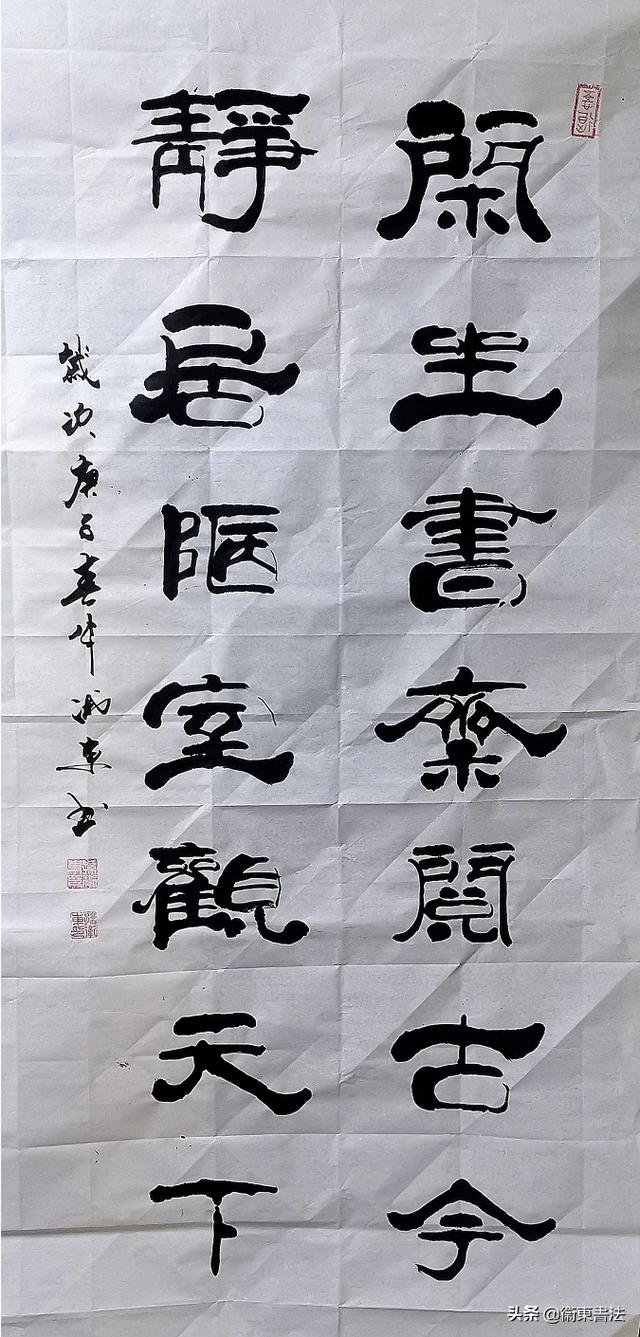 閑坐書齋閱古今
靜居陋室觀天下
歲次庚子春衛東书
头条 @衛東書法